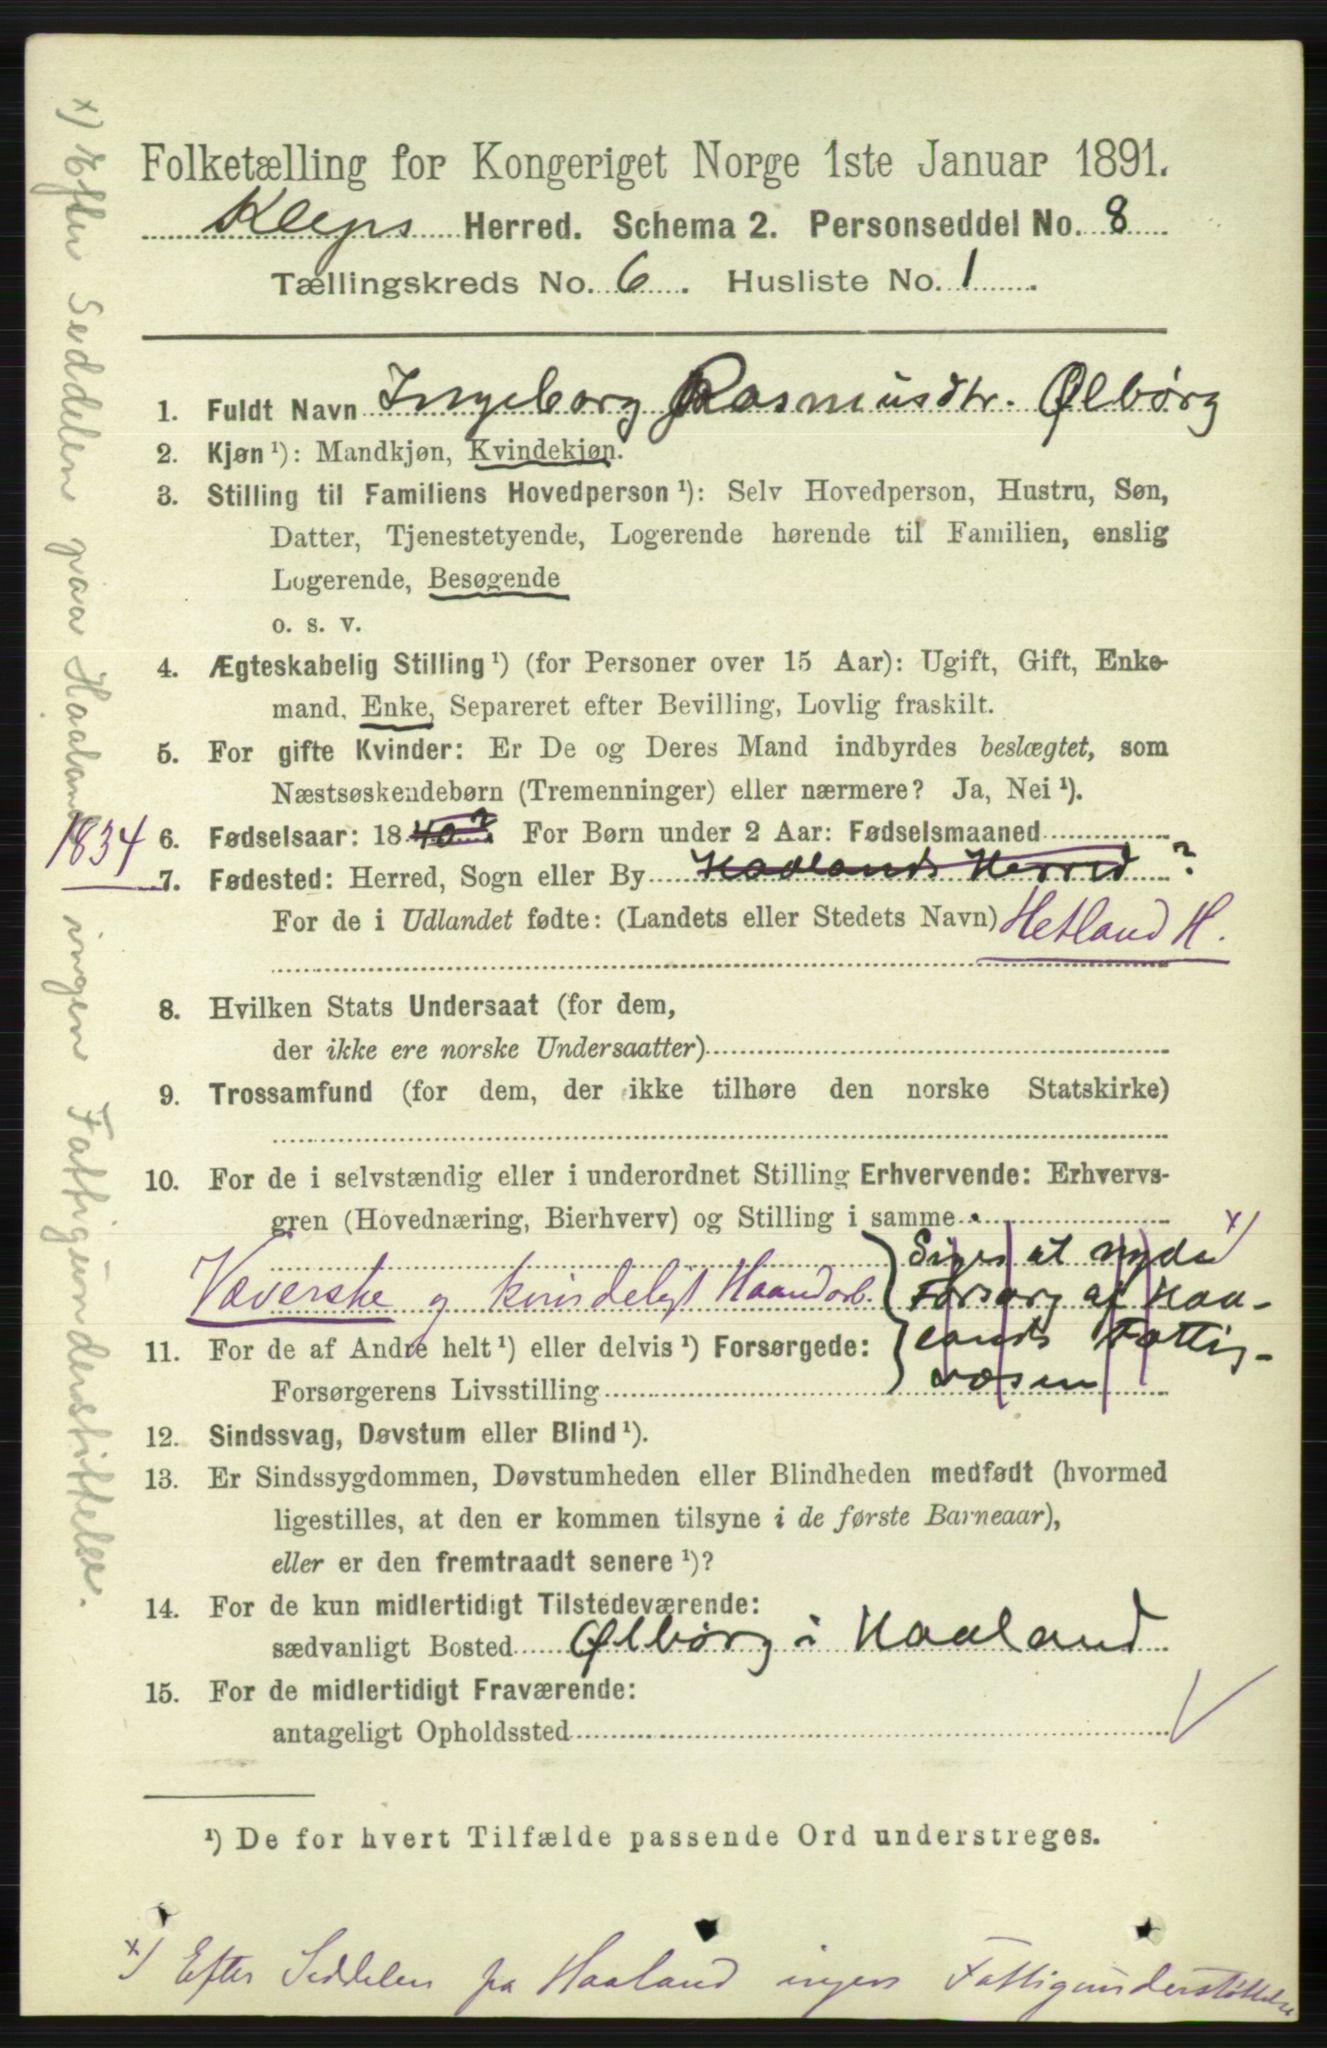 Folketælling for Kongeriget Norge 1ste Januar 1891.
Kleps Herred. Schema 2. Personseddel No. 8
Tællingskreds No. 6. Husliste No. 1.
1. Fuldt Navn Ingeborg Rasmusdtr. Ølbørg
2. Kjøn ¹): Mandkjøn, Kvindekjøn.
3. Stilling til Familiens Hovedperson ¹): Selv Hovedperson, Hustru, Søn,
Datter, Tjenestetyende, Logerende hørende til Familien, enslig
Logerende, Besøgende
o. s. v.
4. Ægteskabelig Stilling ¹) (for Personer over 15 Aar): Ugift, Gift, Enke-
mand, Enke, Separeret efter Bevilling, Lovlig fraskilt.
5. For gifte Kvinder: Er De og Deres Mand indbyrdes beslægtet, som
Næstsøskendebørn (Tremenninger) eller nærmere? Ja, Nei ¹).
1834 6. Fødselsaar: 18 40? For Børn under 2 Aar: Fødselsmaaned
7. Fødested: Herred, Sogn eller By Haalands Herred ?
For de i Udlandet fødte: (Landets eller Stedets Navn) Hetland H.
8. Hvilken Stats Undersaat (for dem,
der ikke ere norske Undersaatter)
9. Trossamfund (for dem, der ikke tilhøre den norske Statskirke)
10. For de i selvstændig eller i underordnet Stilling Erhvervende: Erhvervs-
gren (Hovednæring, Bierhverv) og Stilling i samme
x) Siges at nyde
Væverske og kvindeligt Haandarb. Forsørg af Haa-
11. For de af Andre helt ¹) eller delvis ¹) Forsørgede: lands Fattig-
Forsørgerens Livsstilling væsen
12. Sindssvag, Døvstum eller Blind ¹).
13. Er Sindssygdommen, Døvstumheden eller Blindheden medfødt (hvormed
ligestilles, at den er kommen tilsyne i de første Barneaar),
eller er den fremtraadt senere ¹)?
14. For de kun midlertidigt Tilstedeværende:
sædvanligt Bosted Ølbørg i Haaland
15. For de midlertidigt Fraværende:
antageligt Opholdssted
¹) De for hvert Tilfælde passende Ord understreges.
x) Efter Seddelen pa Haaland ingen Fattigunderstøttelse
x) Efter Seddelen paa Haaland ingen Fattigunderstøttelse.